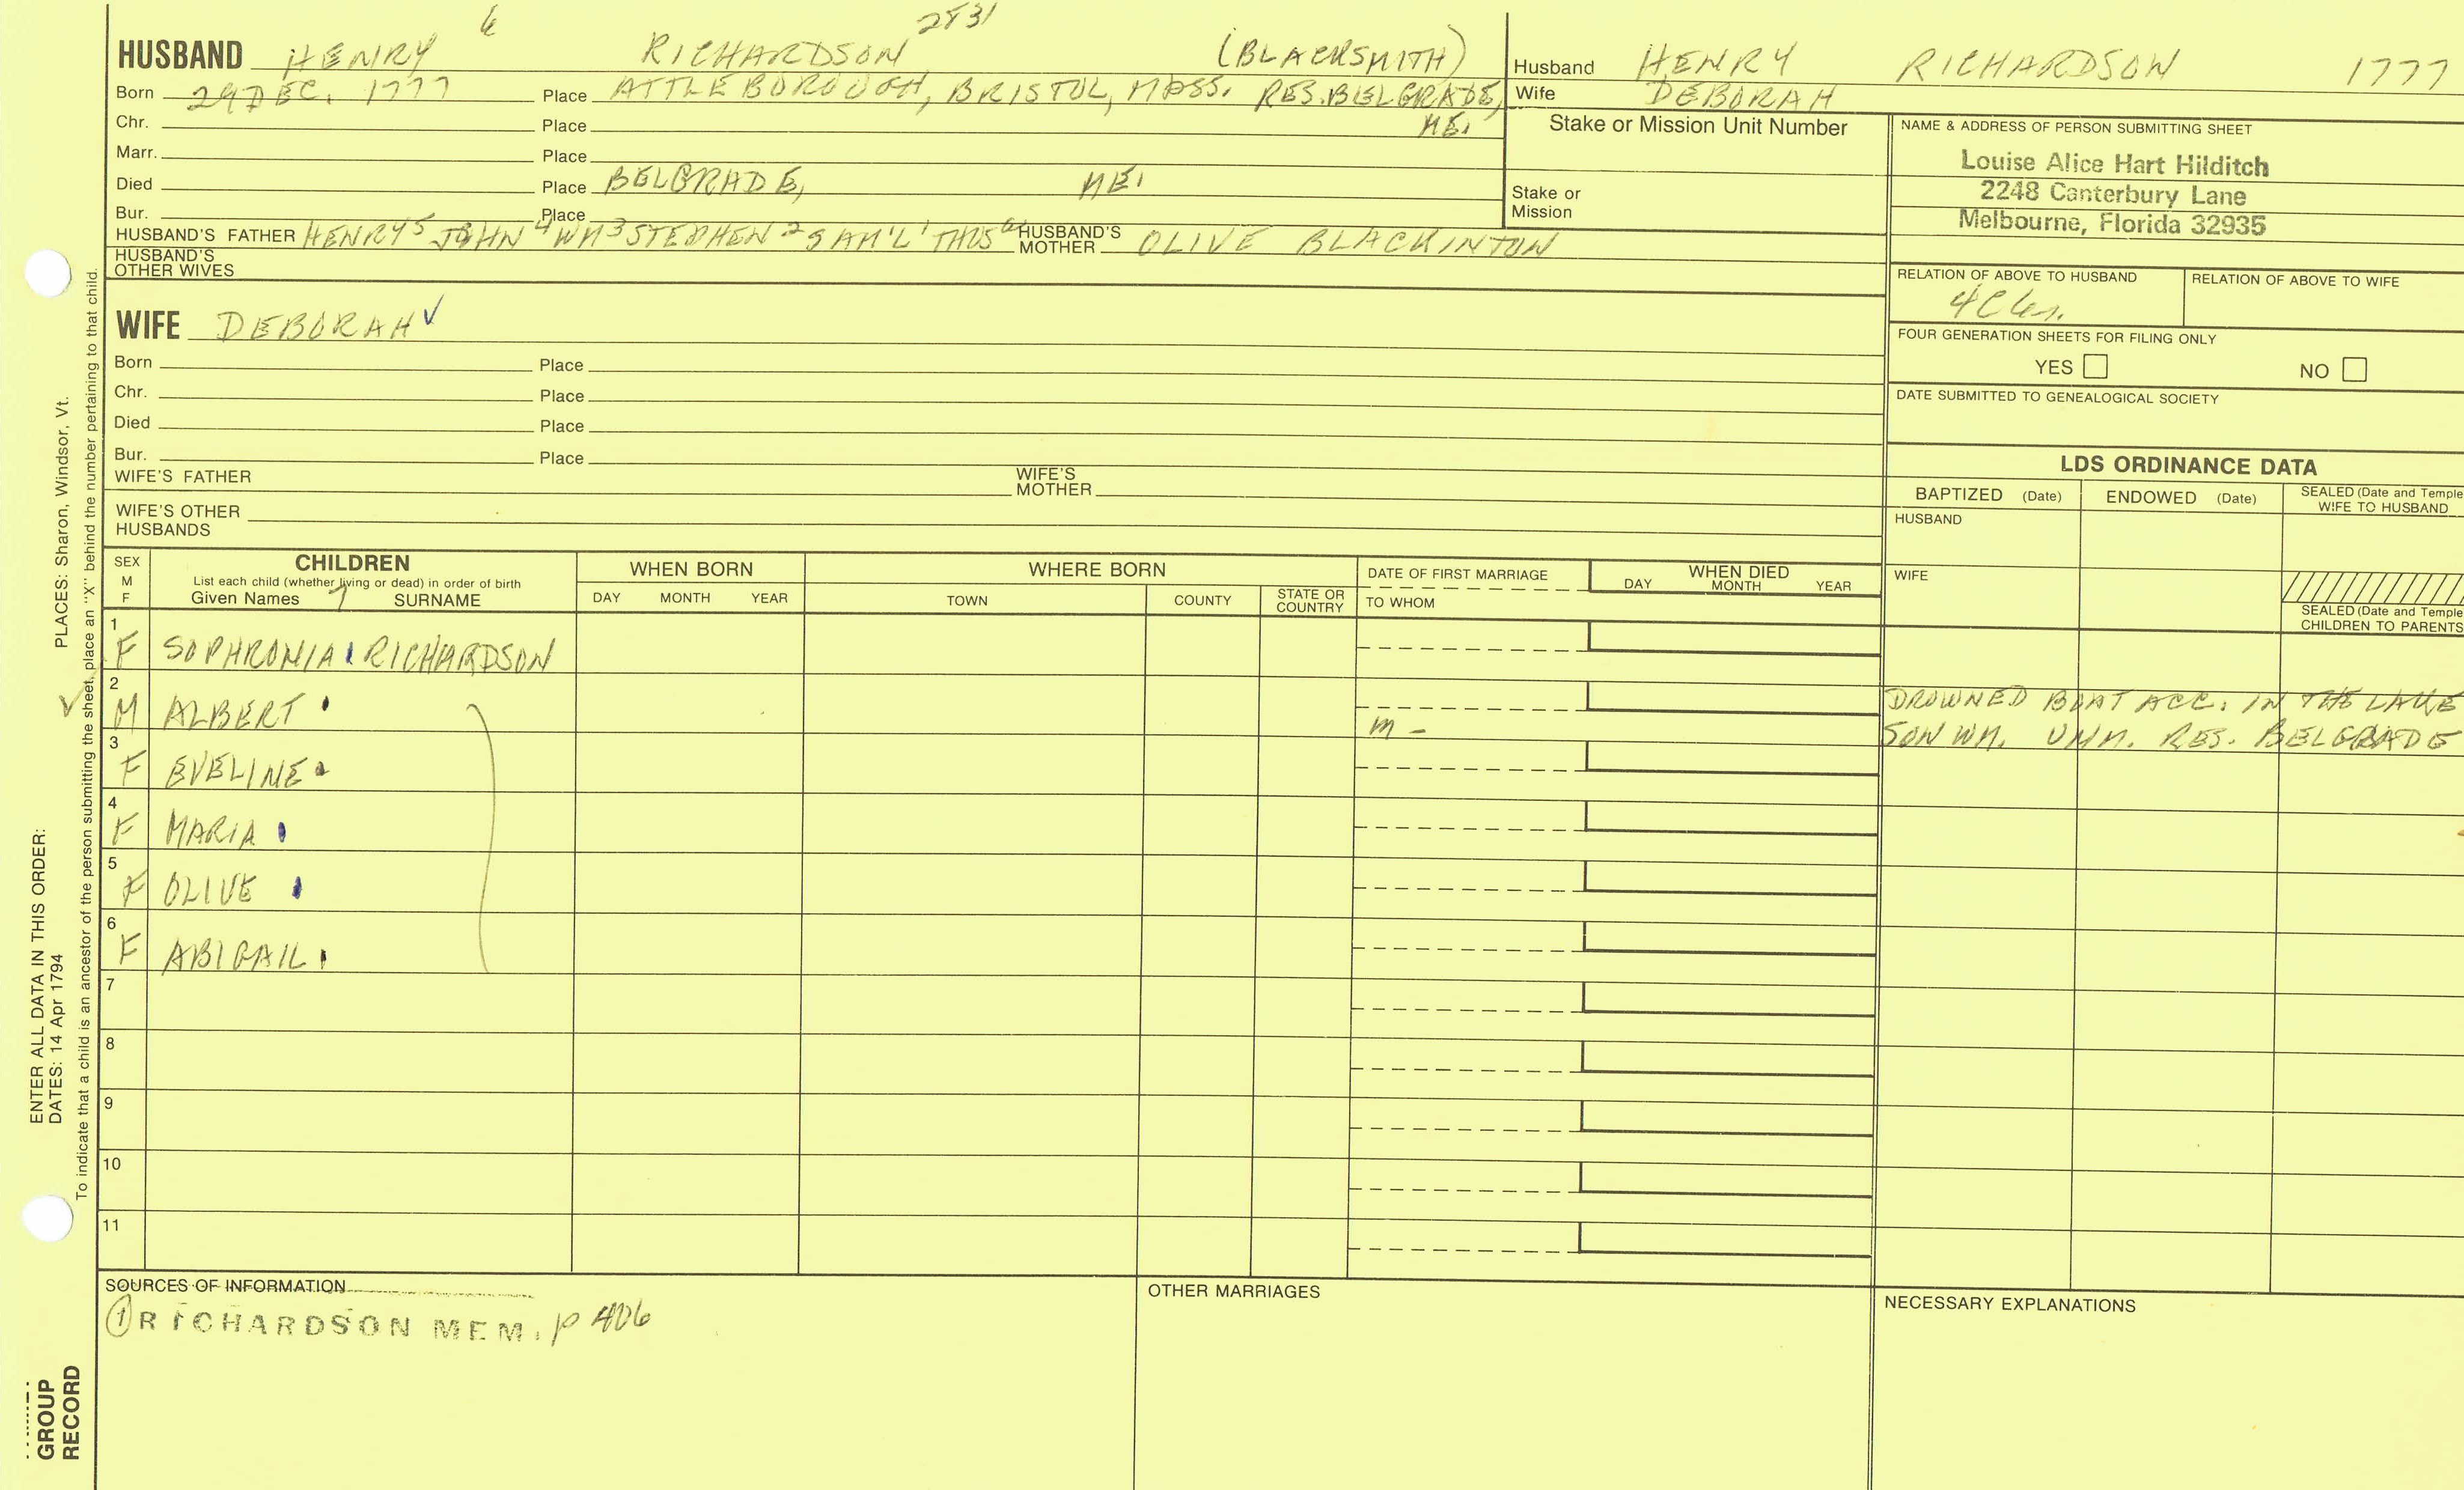 6 2831
HUSBAND HENRY RICHARDSON (BLACKSMITH)
Born 29 DEC. 1777 Place ATTLEBOROUGH, BRISTOL, MASS. RES. BELGRADE,
Chr. Place ME.
Marr. Place
Died Place BELGRADE, ME.
Bur. Place
HUSBAND'S FATHER HENRY5 JOHN4 WM3 STEPHEN2 SAM'L1 THOS HUSBAND'S MOTHER OLIVE BLACKINTON
HUSBAND'S OTHER WIVES
Husband HENRY RICHARDSON 1777
Wife DEBORAH
Stake or Mission Unit Number
Stake or
Mission
NAME & ADDRESS OF PERSON SUBMITTING SHEET
Louise Alice Hart Hilditch
2248 Canterbury Lane
Melbourne, Florida 32935
RELATION OF ABOVE TO HUSBAND RELATION OF ABOVE TO WIFE
FOUR GENERATION SHEETS FOR FILING ONLY
YES NO
DATE SUBMITTED TO GENEALOGICAL SOCIETY
WIFE DEBORAH ✓
Born Place
Chr. Place
Died Place
Bur. Place
WIFE'S FATHER WIFE'S MOTHER
WIFE'S OTHER
HUSBANDS
LDS ORDINANCE DATA
BAPTIZED (Date) ENDOWED (Date) SEALED (Date and Temple
WIFE TO HUSBAND
HUSBAND
WIFE
SEALED (Date and Temple
CHILDREN TO PARENTS
SEX
M
F
CHILDREN
List each child (whether living or dead) in order of birth
Given Names 7 SURNAME
WHEN BORN
DAY MONTH YEAR
WHERE BORN
TOWN COUNTY STATE OR COUNTRY
DATE OF FIRST MARRIAGE
TO WHOM
WHEN DIED
DAY MONTH YEAR
1 F SOPHRONIA RICHARDSON
2 M ALBERT DROWNED BOAT ACC. IN THE LAKE
m - SON WM. UNM. RES. BELGRADE
3 F EVELINE
4 F MARIA
5 F OLIVE
6 F ABIGAIL
7
8
9
10
11
SOURCES OF INFORMATION
① RICHARDSON MEM. p 406
OTHER MARRIAGES
NECESSARY EXPLANATIONS
ENTER ALL DATA IN THIS ORDER:
DATES: 14 Apr 1794 PLACES: Sharon, Windsor, Vt.
To indicate that a child is an ancestor of the person submitting the sheet, place an "X" behind the number pertaining to that child.
✓
GROUP
RECORD